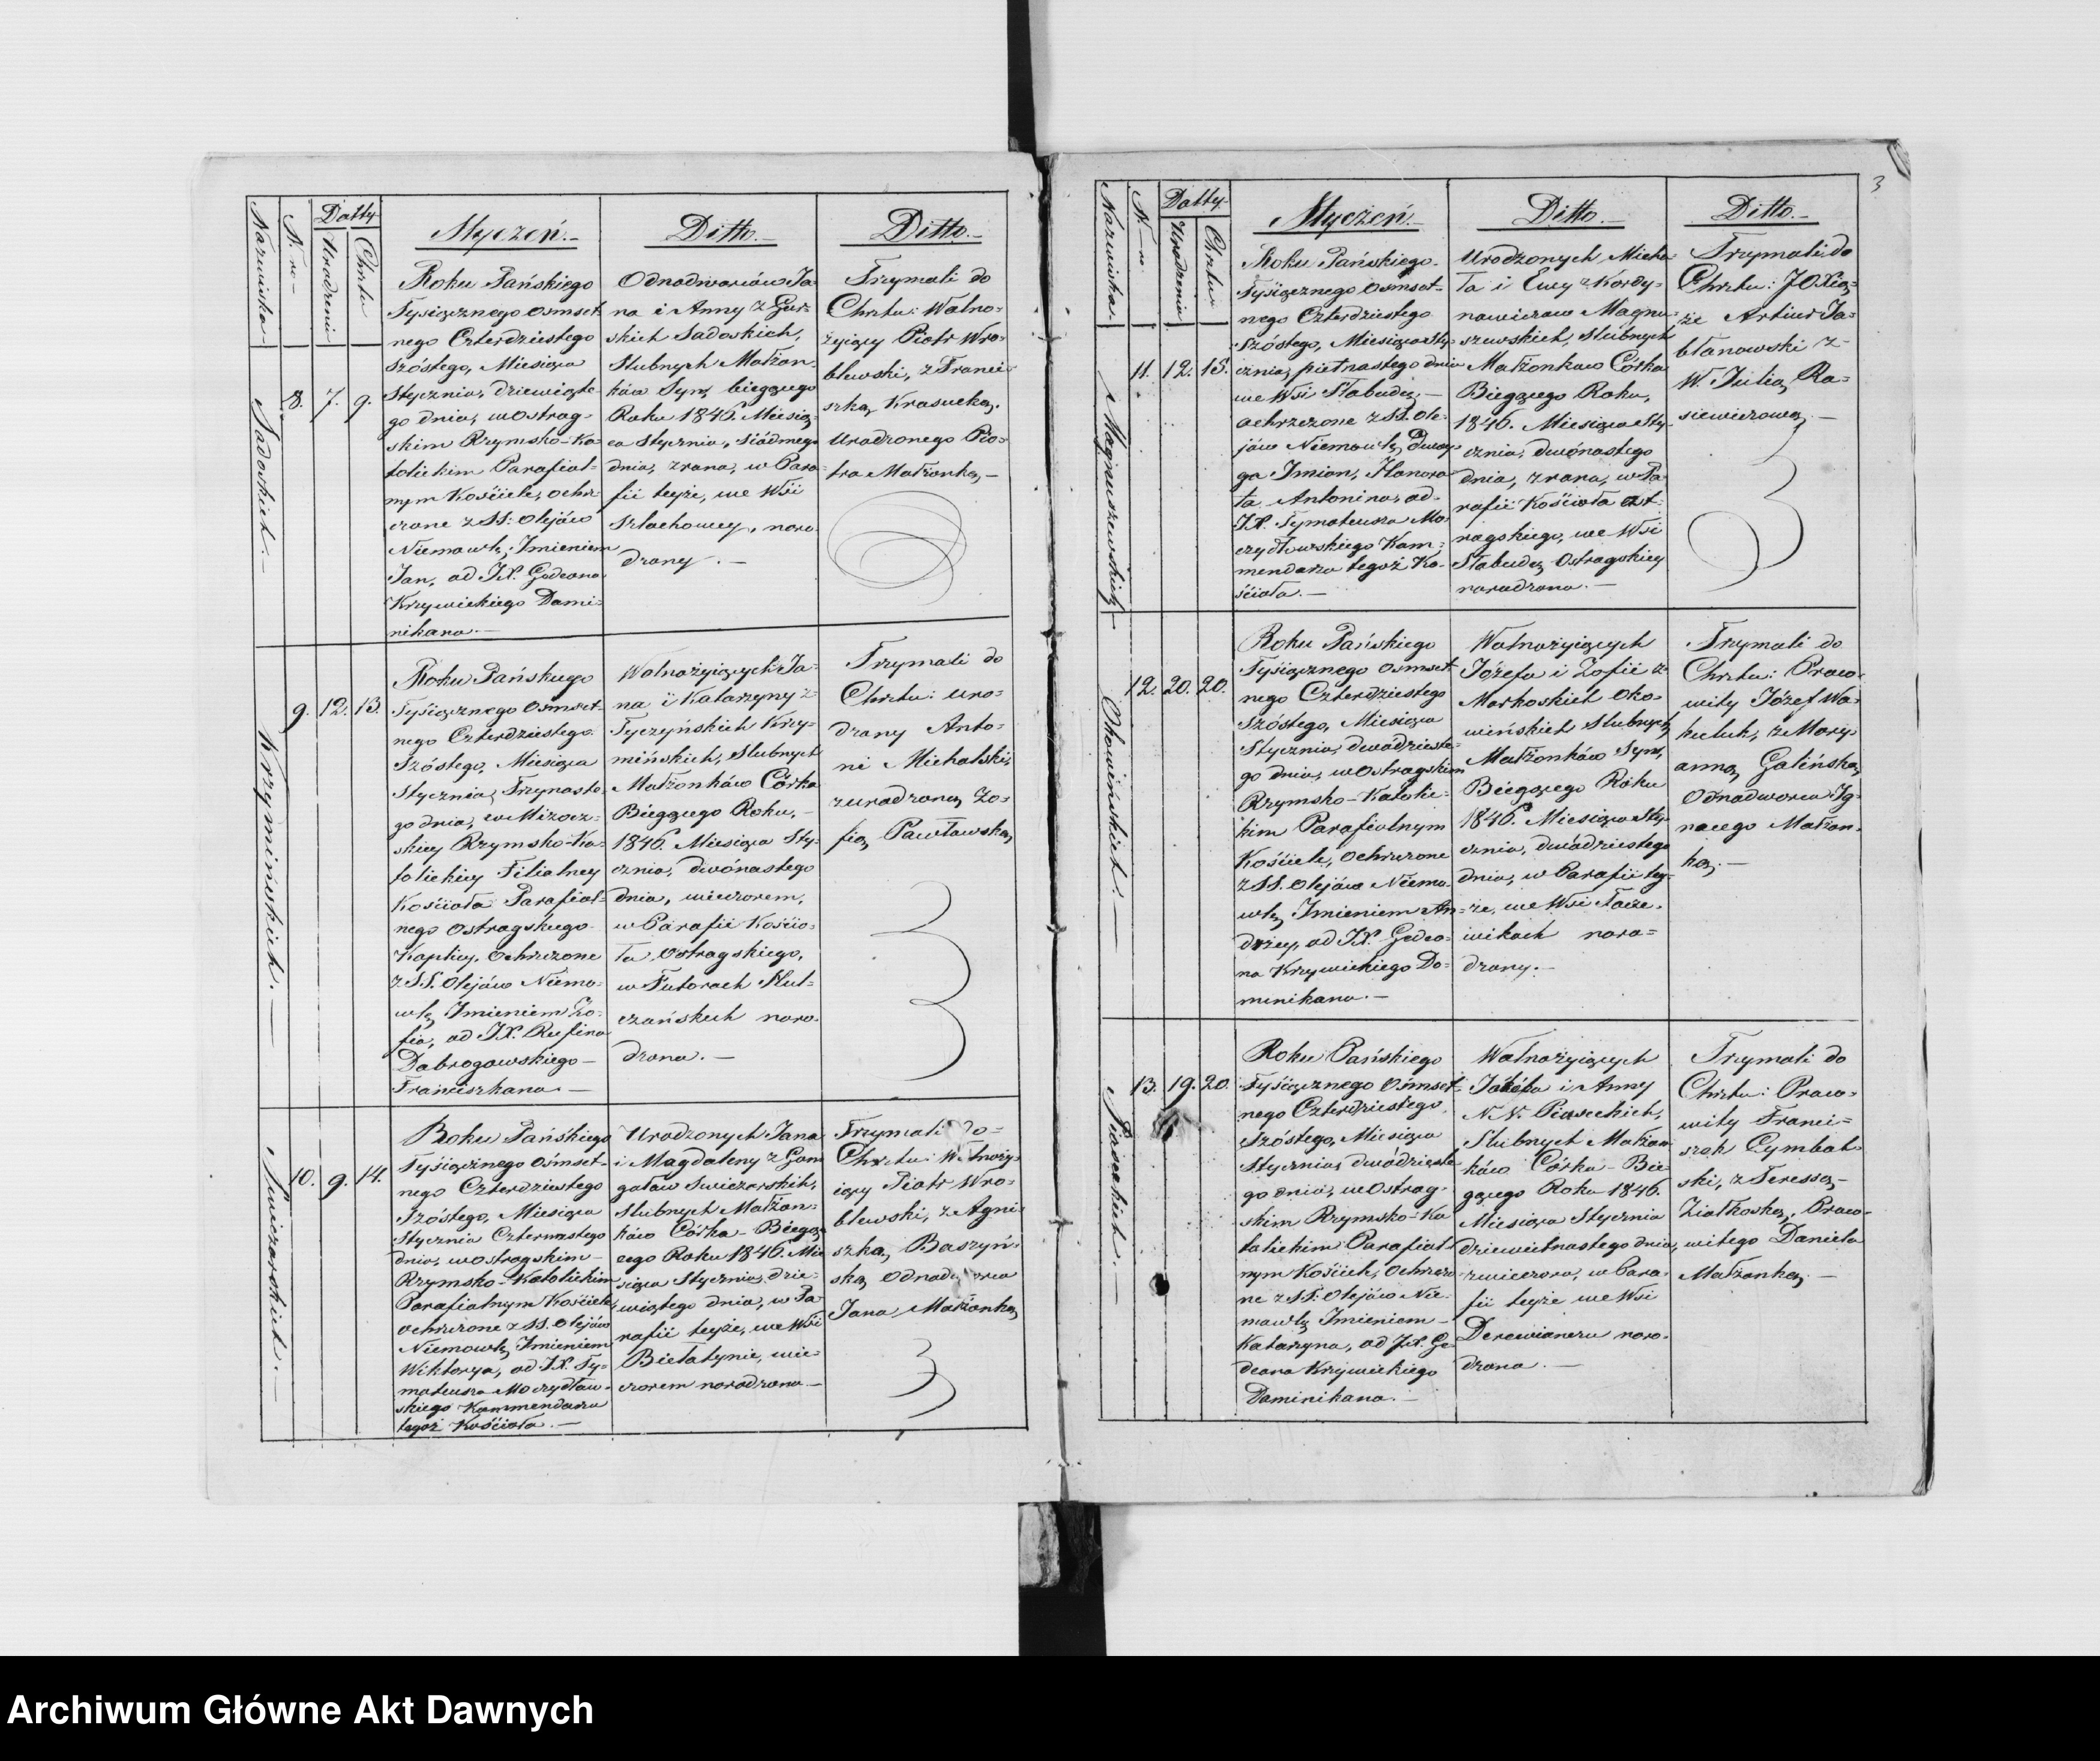 3
Nazwiska
N-ro
Datty
Urodzenia
Chrztu
Styczeń.
Ditto.
Ditto.
Sadoskich.
8. 7. 9.
Roku Pańskiego
Tysiącznego Osmset
nego Czterdziestego
Szóstego, Miesiąca
Stycznia, dziewiąte
go dnia, w Ostrog-
skim Rzymsko-Ka-
tolickim Parafial-
nym Kościele, ochrz
czone z SS: Olejów
Niemowlę, Imieniem
Jan, od JX. Gedeona
Krzywickiego Domi-
nikana.
Odnodworców Ja-
na i Anny z Gur-
skich Sadoskich,
Slubnych Małżon-
ków Syn, biegącego
Roku 1846. Miesią-
ca Stycznia, siódmego
dnia, zrana, w Para-
fii tejże, we Wsi
Szlachowey, naro-
dzony.
Trzymali do
Chrztu: Wolno-
żyiący Piotr Wro-
blewski, z Franci-
szką Krasucką,
Urodzonego Pio-
tra Małżonką,
Krzymińskich.
9. 12. 13.
Roku Pańskiego
Tysiącznego Osmset-
nego Czterdziestego
Szóstego, Miesiąca
Stycznia, Trzynaste-
go dnia, w Mizocz-
skiey Rzymsko-Ka-
tolickiey Filialney
Kościoła Parafial-
nego Ostrogskiego
Kaplicy, Ochrzczone
z SS. Olejów Niemo-
wlę Imieniem Zo-
fia, od JX. Rufina
Dobrogowskiego
Franciszkana.
Wolnożyiących Ja-
na i Katarzyny z
Tyczyńskich Krzy-
mińskich, Slubnych
Małżonków Córka
Biegącego Roku,
1846. Miesiąca Sty-
cznia, dwónastego
dnia, wieczorem,
w Parafii Kościo-
ła Ostrogskiego,
w Futorach
czańskich naro-
dzona.
Trzymali do
Chrztu: Uro-
dzony Anto-
ni Michalski,
z urodzoną Zo-
fią Pawłowską
Swieżarskich.
10. 9. 14.
Roku Pańskiego
Tysiącznego Osmset-
nego Czterdziestego
Szóstego, Miesiąca
Stycznia Czternastego
dnia, w Ostrogskim
Rzymsko-Katolickim
Parafialnym Kościele,
ochrzczone z SS. Olejów
Niemowlę, Imieniem
Wiktorya, od JX. Ty-
moteusza Moczydłow-
skiego Kommendarza
tegoż Kościoła.
Urodzonych Jana
i Magdaleny z Gom
gałów Swieżarskich,
Slubnych Małżon-
ków Córka Biegą-
cego Roku 1846. Mie-
siąca Stycznia, dzie-
wiątego dnia, w Pa-
rafii tejże, we Wsi
Bielatynie, wie-
czorem narodzona
Trzymali do
Chrztu: Wolnoży-
iący Piotr Wro-
blewski, z Agni-
szką Baszyń-
ską Odnodworca
Jana Małżonką
Nazwiska
N-ro
Datty
Urodzenia
Chrztu
Styczeń.
Ditto.
Ditto.
Magnuszewskich
11. 12. 15.
Roku Pańskiego
Tysiącznego Osmset-
nego Czterdziestego
Szóstego, Miesiąca Sty-
cznia, piętnastego dnia
we Wsi Słobudcę
ochrzczone z SS. Ole-
jów Niemowlę, Dwoy-
ga Imion, Honora-
ta Antonina, od
JX. Tymoteusza Mo-
czydłowskiego Kom-
mendarza tegoż Ko-
ścioła.
Urodzonych Micha-
ła i Ewy z Kordy-
nowiczow Magnu-
szewskich, Slubnych
Małżonkow Córka
Biegącego Roku,
1846. Miesiąca Sty-
cznia, dwónastego
dnia, zrana, w Pa-
rafii Kościoła Ost-
rogskiego, we Wsi
Słobudcę Ostrogskiey
narodzona.
Trzymali do
Chrztu: JO Xią-
że Artiur Ja-
błonowski z
W. Julią Ra-
siewiczową,
Okowińskich.
12. 20. 20.
Roku Pańskiego
Tysiącznego Osmset-
nego Czterdziestego
Szóstego, Miesiąca
Stycznia, dwudzieste-
go dnia, w Ostrogskim
Rzymsko-Katolic-
kim Parafialnym
Kościele, Ochrzczone
z SS. Olejów Niemo-
wlę Imieniem An-
drzey, od JX. Gedeo-
na Krzywickiego Do-
minikana.
Wolnożyiących
Józefa i Zofii z
Markoskich Oko-
wińskich Slubnych
Małżonków Syn,
Biegącego Roku
1846. Miesiąca Sty-
cznia, dwódziestego
dnia, w Parafii tey-
że, we Wsi
wikach naro-
dzony.
Trzymali do
Chrztu: Praco-
wity Józef Wa-
keluk, z Mary-
anną Galińską,
Odnodworca Ig-
nacego Małżon-
ką.
Piaseckich.
13. 19. 20.
Roku Pańskiego
Tysiącznego Osmset-
nego Czterdziestego
Szóstego, Miesiąca
Stycznia, dwódzieste-
go dnia, w Ostrog-
skim Rzymsko-Ka-
tolickim Parafial-
nym Kościele, Ochrzczo-
ne z SS. Olejów Nie-
mowlę Imieniem
Katarzyna, od JX. Ge-
deona Krzywickiego
Dominikana.
Wolnożyiących
Jakóba i Anny
N. N. Piaseckich,
Slubnych Małżon-
ków Córka Bie-
gącego Roku 1846.
Miesiąca Stycznia
dziewietnastego dnia,
zwieczora, w Para-
fii tejże we Wsi
Derewianczu naro-
dzona.
Trzymali do
Chrztu: Praco-
wity Franci-
szek Cymbal-
ski, z Teressą
Ziółkoską, Praco-
witego Daniela
Małżonką.
Archiwum Główne Akt Dawnych